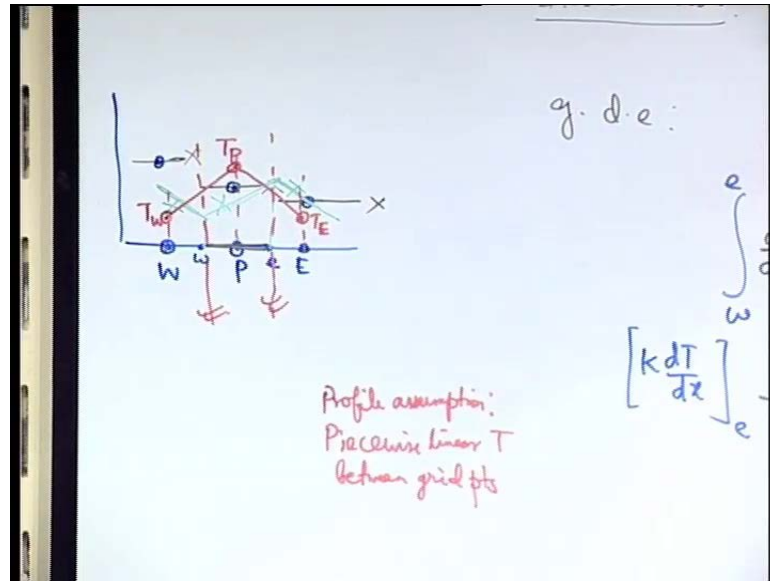 g. d. e:
T_P
T_W
T_E
X
W w P e E
e
∫
w
[K dT/dx]_e
Profile assumption:
Piecewise linear T
between grid pts